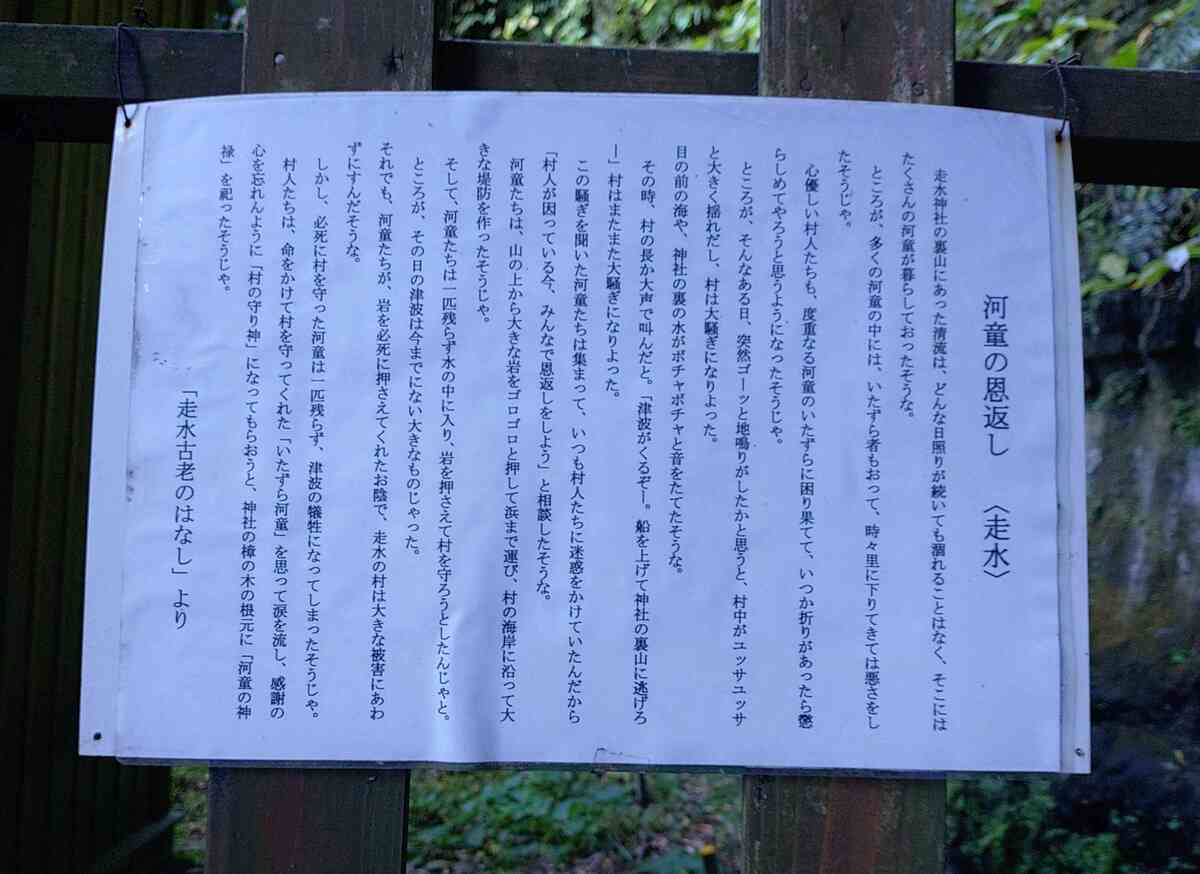 河童の恩返し 〈走水〉
走水神社の裏山にあった清流は、どんな日照りが続いても涸れることはなく、そこには
たくさんの河童が暮らしておったそうな。
ところが、多くの河童の中には、いたずら者もおって、時々里に下りてきては悪さをし
たそうじゃ。
心優しい村人たちも、度重なる河童のいたずらに困り果てて、いつか折りがあったら懲
らしめてやろうと思うようになったそうじゃ。
ところが、そんなある日、突然ゴーッと地鳴りがしたかと思うと、村中がユッサユッサ
と大きく揺れだし、村は大騒ぎになりよった。
目の前の海や、神社の裏の水がボチャボチャと音をたてたそうな。
その時、村の長か大声で叫んだと。「津波がくるぞー。船を上げて神社の裏山に逃げろ
ー」村はまたまた大騒ぎになりよった。
この騒ぎを聞いた河童たちは集まって、いつも村人たちに迷惑をかけていたんだから
「村人が困っている今、みんなで恩返しをしよう」と相談したそうな。
河童たちは、山の上から大きな岩をゴロゴロと押して浜まで運び、村の海岸に沿って大
きな堤防を作ったそうじゃ。
そして、河童たちは一匹残らず水の中に入り、岩を押さえて村を守ろうとしたんじゃと。
ところが、その日の津波は今までにない大きなものじゃった。
それでも、河童たちが、岩を必死に押さえてくれたお陰で、走水の村は大きな被害にあわ
ずにすんだそうな。
しかし、必死に村を守った河童は一匹残らず、津波の犠牲になってしまったそうじゃ。
村人たちは、命をかけて村を守ってくれた「いたずら河童」を思って涙を流し、感謝の
心を忘れんように「村の守り神」になってもらおうと、神社の樟の木の根元に「河童の神
禄」を祀ったそうじゃ。
「走水古老のはなし」より